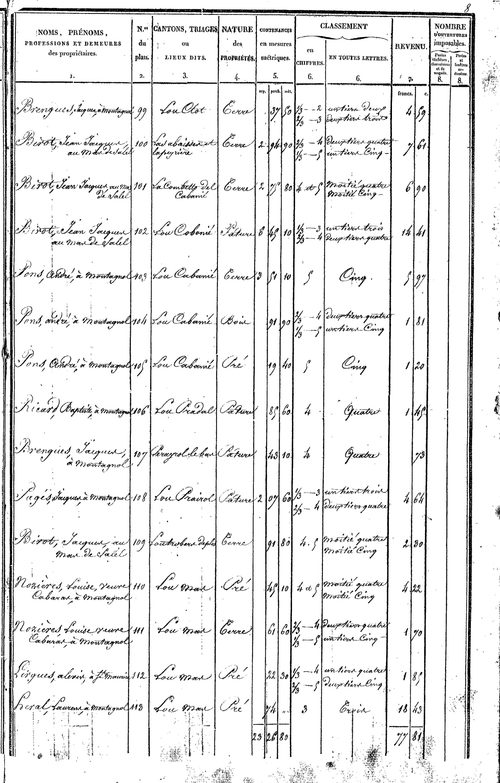 8
NOMS, PRÉNOMS, PROFESSIONS ET DEMEURES des propriétaires. N.os du plan. CANTONS, TRIAGES ou LIEUX DITS. NATURE des PROPRIÉTÉS. CONTENANCES en mesures métriques. CLASSEMENT en CHIFFRES. EN TOUTES LETTRES. REVENU. NOMBRE D'OUVERTURES imposables.
1. 2. 3. 4. 5. 6. 6. 7. 8. 8.
arp. perch. mèt. francs. c.
Brengues, Jacques, à Montagnol 99 Lou Clot Terre 37 50 1/3 — 2 un tiers deux 4 59
2/3 — 3 deux tiers trois
Birot, Jean Jacques 100 Terre 2 94 90 2/3 — 4 deux tiers quatre 7 61
au Mas de Salel 1/3 — 5 un tiers Cinq
Birot, Jean Jacques au mas 101 La Combette del Terre 2 75 80 4 et 5 Moitié quatre 6 90
de Salel Cabanié Moitié Cinq
Birot, Jean Jacques 102 Lou Cabanié Pâture 6 45 10 1/3 — 3 un tiers trois 14 41
au mas de Salel 2/3 — 4 deux tiers quatre
Pons, André, à Montagnol 103 Lou Cabanié Terre 3 51 10 5 Cinq 5 97
Pons, André, à Montagnol 104 Lou Cabanié Bois 91 90 2/3 — 4 deux tiers quatre 1 81
1/3 — 5 un tiers Cinq
Pons, André, à Montagnol 105 Lou Cabanié Pré 19 40 5 Cinq 1 20
Ricard, Baptiste, à Montagnol 106 Lou Pradal Pâture 85 60 4 Quatre 1 45
Brengues, Jacques, 107 Pâture 43 10 4 Quatre 73
à Montagnol
Pagés, Jacques, à Montagnol 108 Lou Prairol Pâture 2 07 60 1/3 — 3 un tiers trois 4 64
2/3 — 4 deux tiers quatre
Birot, Jacques, au 109 Terre 91 80 4. 5 Moitié quatre 2 30
mas de Salel Moitié Cinq
Nozières, Louise, veuve 110 Lou Mas Pré 45 10 4 et 5 Moitié quatre 4 22
Cabanas, à Montagnol Moitié Cinq
Nozières Louise veuve 111 Lou mas Terre 61 60 2/3 — 4 deux tiers quatre 1 70
Cabanas, à Montagnol 1/3 — 5 un tiers Cinq
112 Lou Mas Pré 22 30 1/3 — 4 un tiers quatre 1 85
2/3 — 5 deux tiers Cinq
Laurens, à Montagnol 113 Lou Mas Pré 74 .. 3 Trois 18 43
23 26 80 77 81